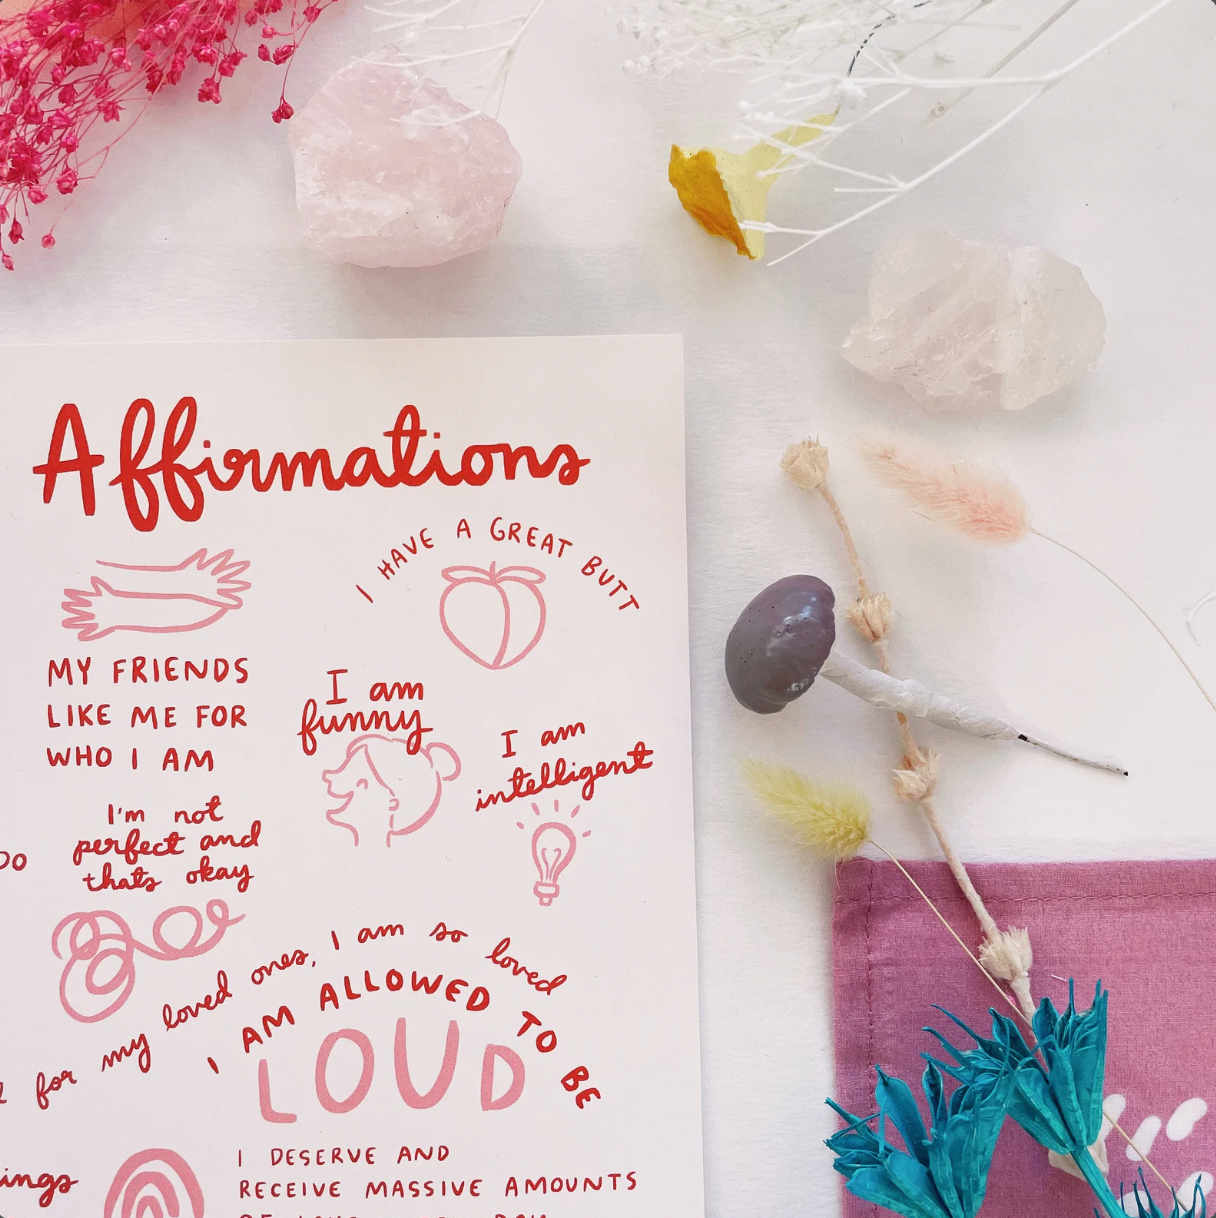 Affirmations
I HAVE A GREAT BUTT
MY FRIENDS
LIKE ME FOR
WHO I AM
I am
funny
I am
intelligent
I'm not
perfect and
thats okay
DO
for my loved ones, I am so loved
I AM ALLOWED TO BE
LOUD
I DESERVE AND
RECEIVE MASSIVE AMOUNTS
ings